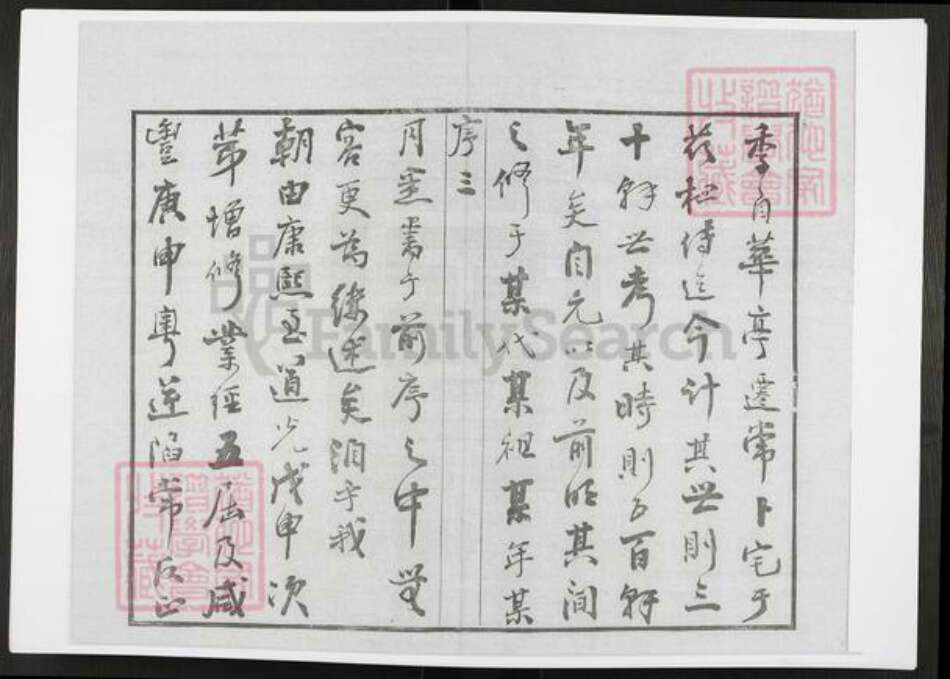 季自華亭遷常卜宅于
茲相傳迄今計其世則三
十餘世考其時則五百餘
年矣自元以及前明其間
之修于某代某祖某年某
序三
月悉書于前序之中無
容更為縷述矣洎乎我
朝由康熙至道光戊申次
第增修業經五屆及咸
豐庚申粵逆陷常
FamilySearch